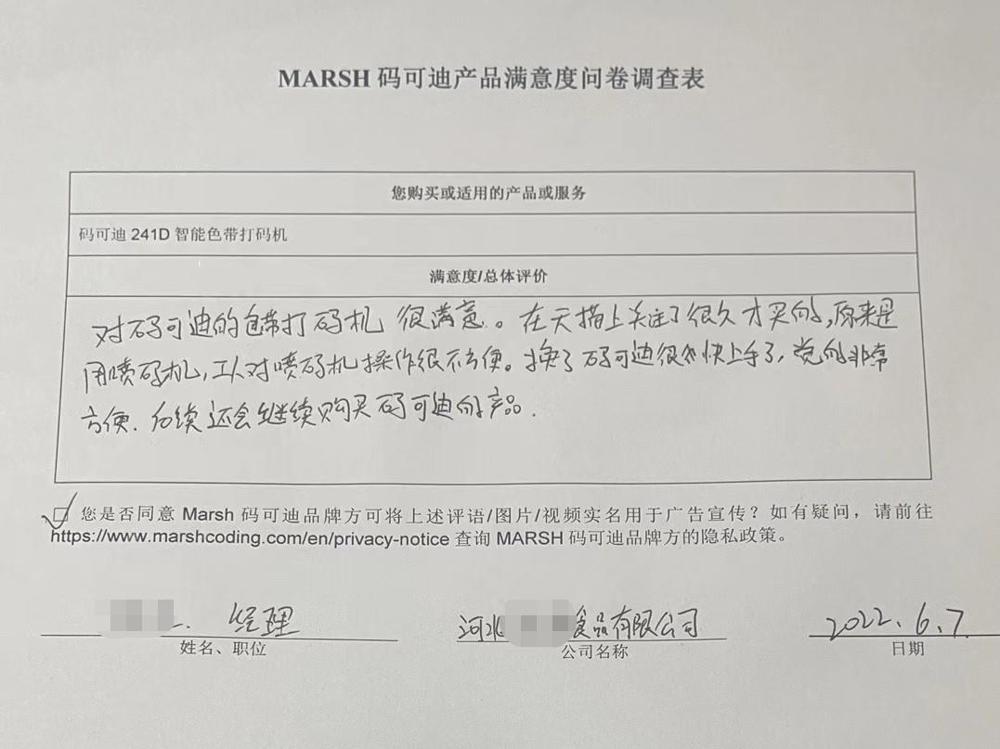 MARSH 码可迪产品满意度问卷调查表
您购买或适用的产品或服务
码可迪 241D 智能色带打码机
满意度/总体评价
对码可迪的色带打码机 很满意。在天猫上关注了很久才买的,原来是
用喷码机,工人对喷码机操作很不方便。换了码可迪很快上手了,觉的非常
方便.后续还会继续购买码可迪的产品.
您是否同意 Marsh 码可迪品牌方可将上述评语/图片/视频实名用于广告宣传?如有疑问,请前往
https://www.marshcoding.com/en/privacy-notice 查询 MARSH 码可迪品牌方的隐私政策。
经理 河北 食品有限公司 2022.6.7.
姓名、职位 公司名称 日期